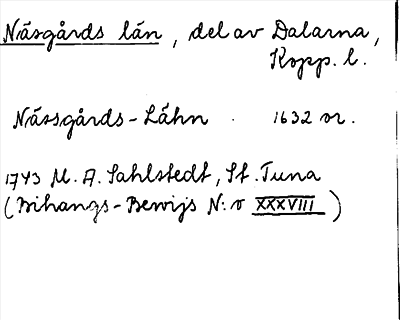 Näsgårds län, del av Dalarna,
Kopp. l.
Nässgårds-Lähn . 1632 or.
1743 M. A. Sahlstedt, St. Tuna
(Bihangs-Bewijs N:o XXXVIII)